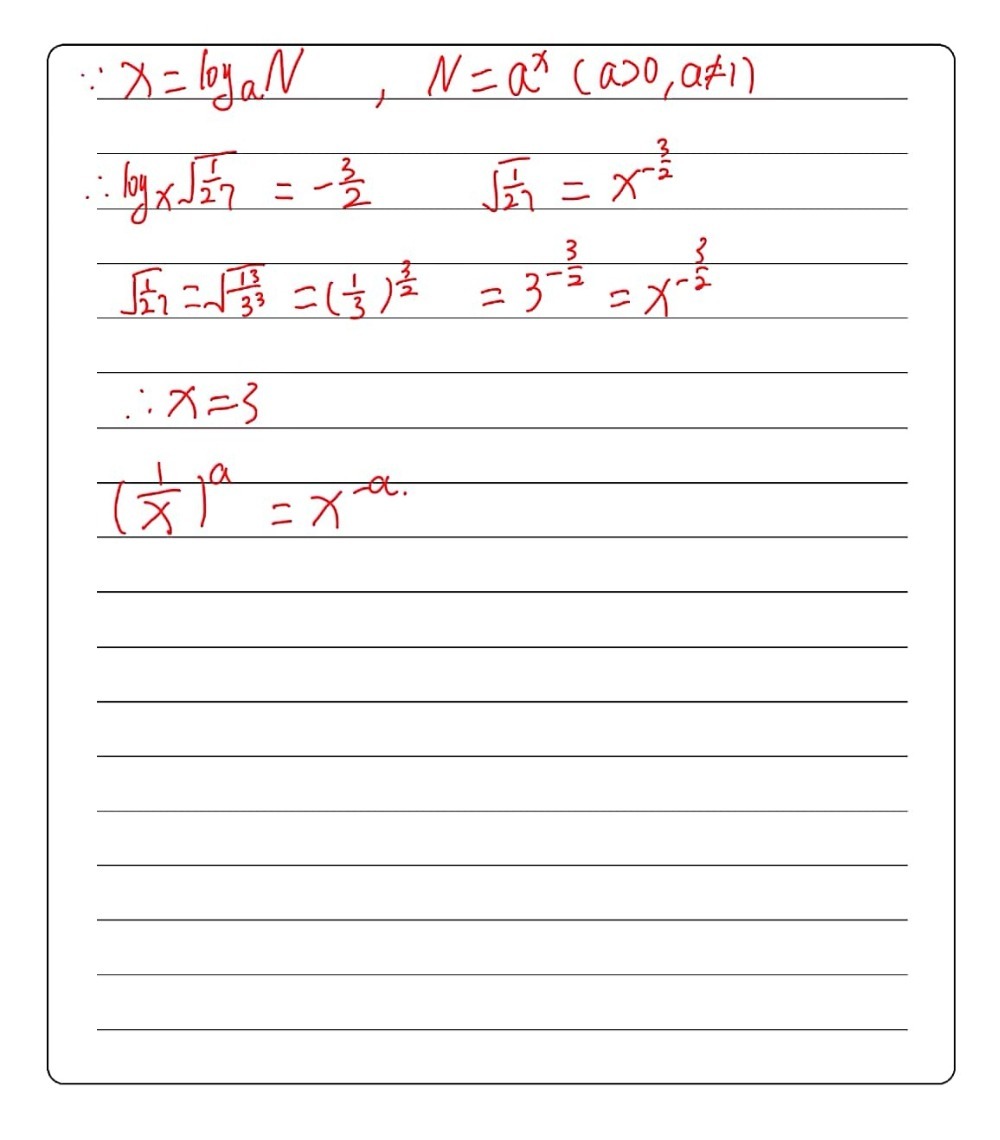 ∵ x = logₐN , N = aˣ (a>0, a≠1)
∴ logₓ√(1/27) = -3/2 √(1/27) = x^(-3/2)
√(1/27) = √(1³/3³) = (1/3)^(3/2) = 3^(-3/2) = x^(-3/2)
∴ x = 3
(1/x)^a = x^(-a).